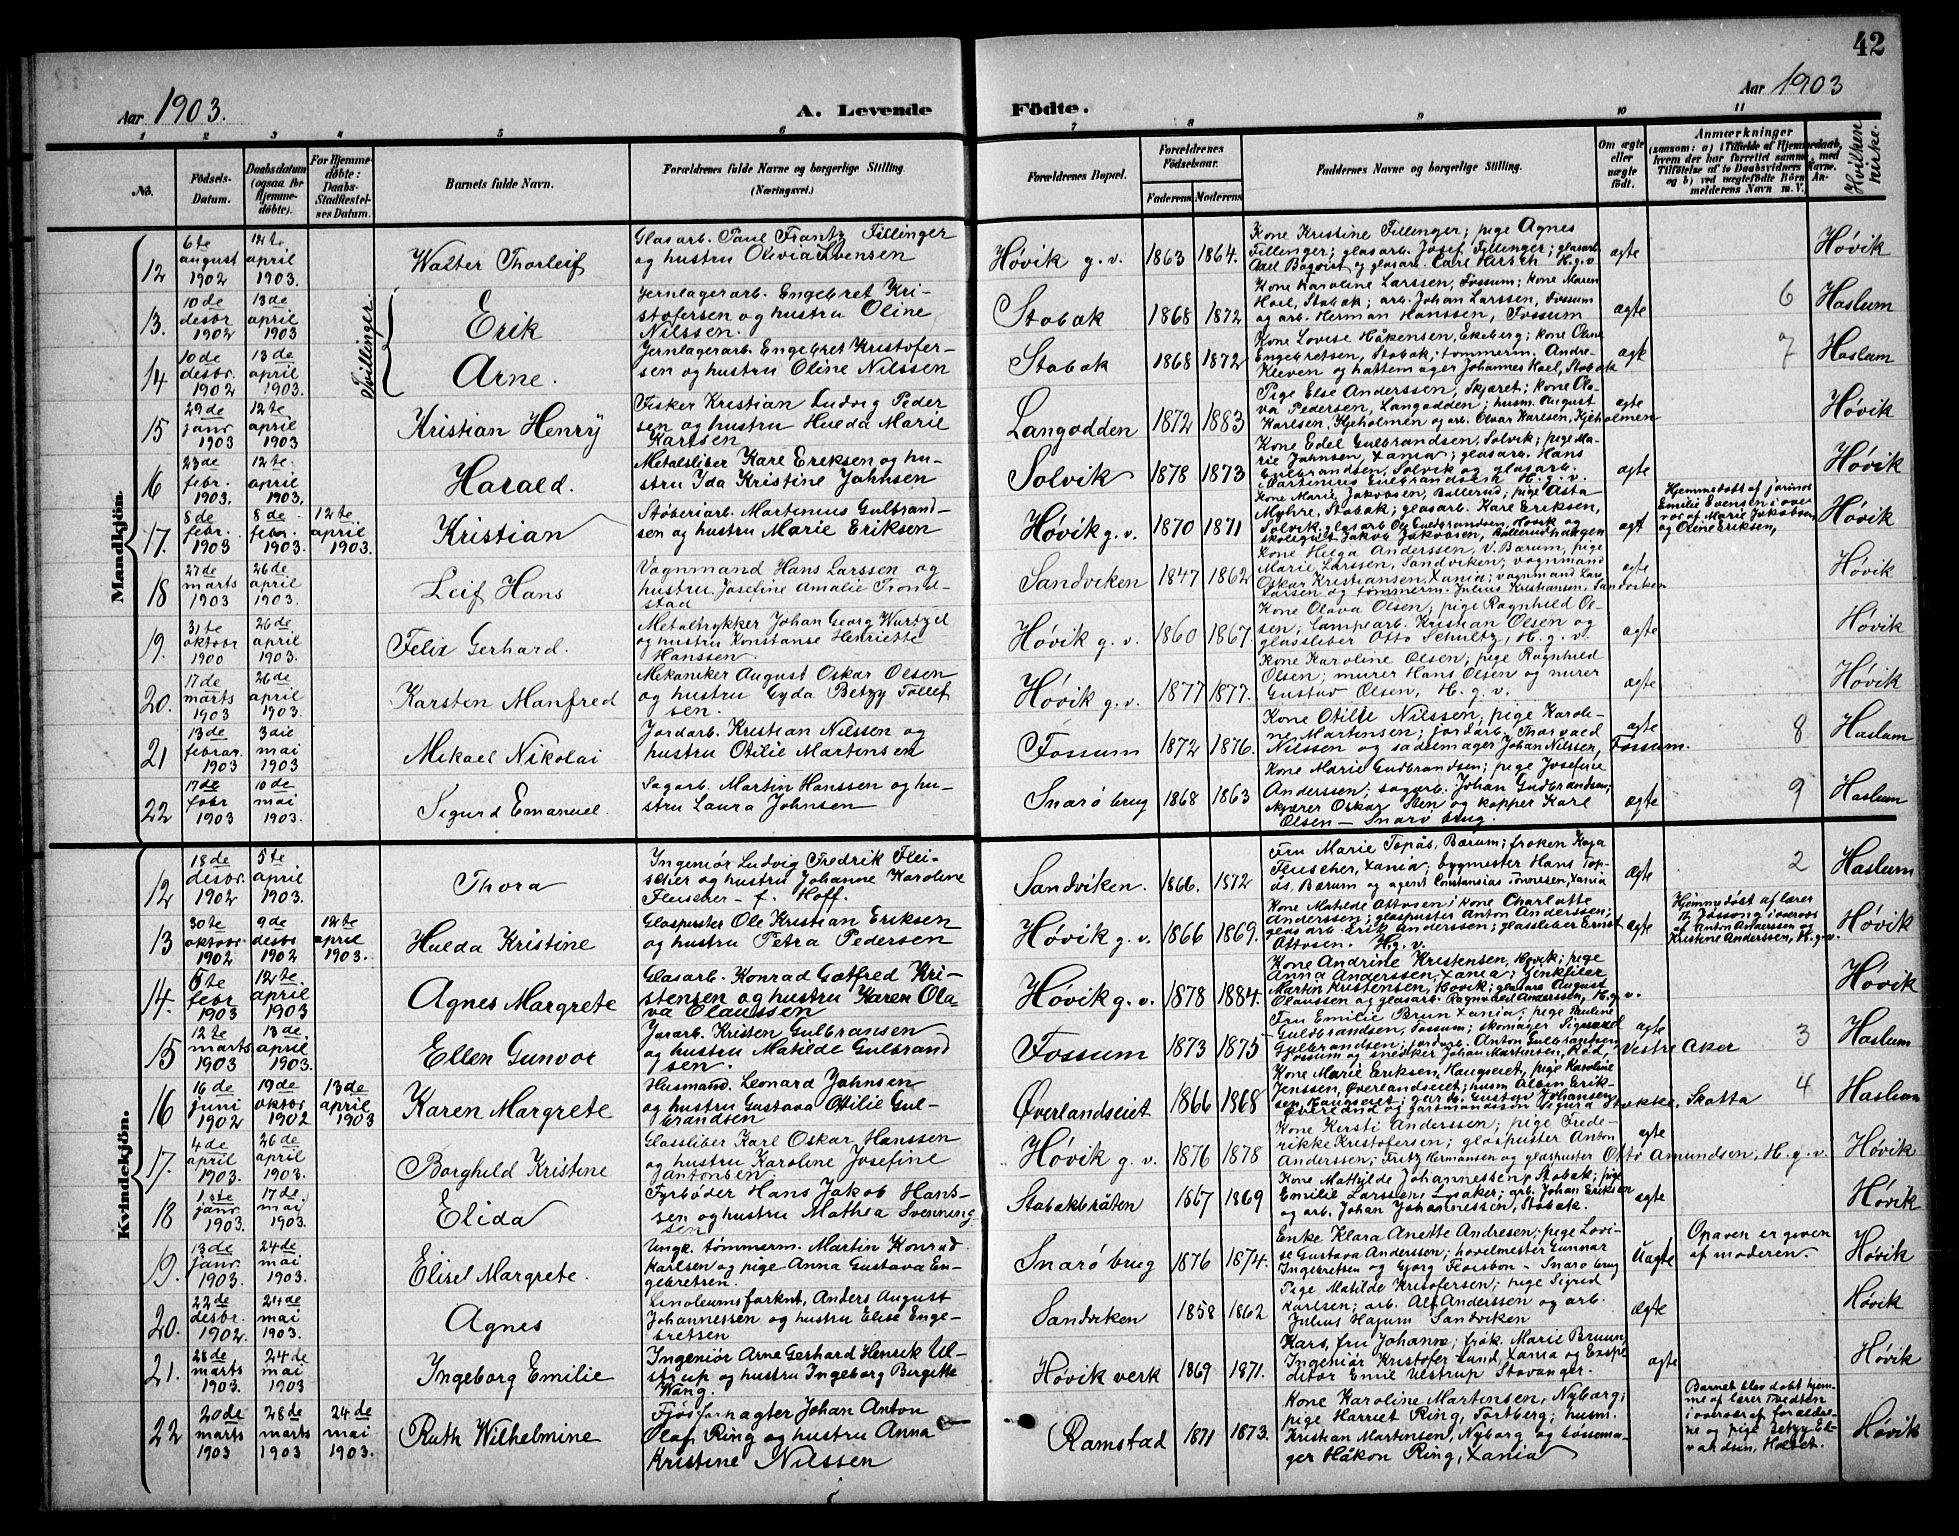 42
Aar 1903.
A. Levende
Födte.
Aar 1903
1 2 3 4 5 6 7 8 9 10 11
No.
Födsels-
Datum.
Daabsdatum
(ogsaa for
Hjemme-
döbte).
For Hjemme-
döbte:
Daabs-
Stadfæstel-
ses Datum.
Barnets fulde Navn.
Forældrenes fulde Navne og borgerlige Stilling
(Næringsvei.)
Forældrenes Bopæl.
Forældrenes
Födselsaar.
Faderens Moderens
Faddernes Navne og borgerlige Stilling.
Om ægte
eller
uægte
födt.
Anmærkninger
Hvilken
kirke.
Mandkjön.
12
6te
august
1902
12te
april
1903.
Walter Thorleif
Glasarb. Paul Frantz Fillinger
og hustru Olivia Svensen
Høvik g. v.
1863
1864.
Kone Kristine Fillinger; pige Agnes
Fillinger; glasarb. Josef Fillinger; glasarb.
Axel Boqvist og glasarb. Carl Hirsch H. g. v.
ægte
Høvik
Tvillinger.
13.
10de
desbr
1902
13de
april
1903
Erik
Jernlagerarb. Engebret Kri-
stofersen og hustru Oline
Nilssen.
Stabæk
1868
1872
Kone Karoline Larssen, Fossum; kone Maren
Hoel, Stabæk; arb. Johan Larssen, Fossum
og arb. Herman Hanssen, Fossum
ægte
6
Haslum
14
10de
desbr.
1902
13de
april
1903.
Arne.
Jernlagerarb. Engebret Kristofer-
sen og hustru Oline Nilssen
Stabæk
1868
1872
Kone Lovise Håkensen, Ekeberg; kone Oline
Engebretsen, Stabæk; tømmerm. Andre-
Kleven og hattemager Johannes Hoel, Stabæk
ægte
7
Haslum
15
29de
janr
1903
12te
april
1903
Kristian Henry
Fisker Kristian Ludvig Peder
sen og hustru Hulda Marie
Karlsen
Langodden
1872
1883
Pige Else Anderssen, Skjæret; kone Ola-
va Pedersen, Langodden; husm. August
Karlsen, Kjeholmen og arb. Olvar Karlsen, Kjeholmen
ægte
Høvik
16
23de
febr.
1903.
12te
april
1903.
Harald.
Metalsliber Karl Eriksen og hu-
stru Ida Kristine Johnsen
Solvik
1878
1873
Kone Edel Gulbrandsen, Solvik; pige Ma-
rie Johnsen, Xania; glasarb. Hans
Gulbrandsen, Solvik og glasarb.
Martinius Gulbrandsen H. g. v.
ægte
Høvik
17.
8de
febr.
1903
8de
febr.
1903.
12te
april
1903.
Kristian
Støberiarb. Martinius Gulbrand-
sen og hustru Marie Eriksen
Høvik g. v.
1870
1871
Kone Marie Jakobsen, Ballerud; pige Asta
Myhre, Stabæk; glasarb. Karl Eriksen,
Solvik, glasarb. Ole Guldbrandsen, Høvik og
skolegut Jakob Jakobsen, Ballerudhaugen
ægt
Hjemmedøbt af jormor
Emilie Svensen i over
vær af Marie Jakobsen
og Oline Eriksen,
Høvik
18
27de
marts
1903
26de
april
1903.
Leif Hans
Vognmand Hans Larssen og
hustru Josefine Amalie Tron-
stad
Sandviken
1847
1862
Kone Helga Anderssen, V. Bærum, pige
Marie Larssen, Sandviken; vognmand
Oskar Kristiansen, Xania; vognmand Lars
Larsen og tømmerm. Julius Kristiansen, Sandviken
ægte
Høvik
19.
31te
oktobr
1900
26de
april
1903.
Felix Gerhard.
Metaltrykker Johan Georg Wurtzel
og hustru Konstanse Henriette
Hanssen.
Høvik g. v.
1860
1867
Kone Olava Olsen; pige Ragnhild Ol-
sen; lampearb. Kristian Olsen og
glassliber Otto Schultz, H. g. v.
ægte
Høvik
20.
17de
marts
1903
26de
april
1903.
Karsten Manfred
Mekaniker August Oskar Olsen
og hustru Gyda Betzy Tollef
sen.
Høvik g. v.
1877
1877.
Kone Karoline Olsen; pige Ragnhild
Olsen; murer Hans Olsen og murer
Gustav Olsen, H. g. v.
ægte
Høvik
21
13de
februar.
1903
3die
mai
1903
Mikael Nikolai
Jordarb. Kristian Nilssen og
hustru Otilie Martensen
Fossum
1872
1876.
Kone Otilie Nilssen; pige Karoli-
ne Martensen; jordarb. Thorvald
Nilssen og sadlemager Johan Nilssen,
Fossum.
ægte
8
Haslum
22
17de
febr
1903
10de
mai
1903.
Sigurd Emanuel.
Sagarb. Martin Hanssen og hu-
stru Laura Johnsen
Snarø brug
1868
1863
Kone Marie Gudbrandsen; pige Josefine
Anderssen; sagarb. Johan Gudbrandsen;
skjærer Oskar Sten og kopper Karl
Olsen — Snarø brug.
ægte
9
Haslum
Kvindekjön.
12
18de
desbr.
1902
5te
april
1903.
Thora
Ingeniør Ludvig Fredrik Flei-
scher og hustru Johanne Karoline
Fleischer - f. Hoff.
Sandviken.
1866.
1872
Fru Marie Topås, Bærum; frøken Kaja
Fleischer, Xania; bygmester Hans Top-
ås, Bærum og agent Constansius Tønnesen, Xania
ægte
2
Haslum
13
30te
oktobr.
1902
9de
desbr
1902
12te
april
1903.
Hulda Kristine
Glaspuster Ole Kristian Eriksen
og hustru Petra Pedersen
Høvik g. v.
1866
1869.
Kone Matilde Ottosen; kone Charlotte
Anderssen; glaspuster Anton Anderssen;
glasarb. Erik Anderssen; glassliber Ernst
Ottosen. H. g. v.
ægte
Hjemmedøbt af lærer
Th. Jossong i overvær
af Anton Anderssen og
Kristine Anderssen, H. g. v.
Høvik
14.
6te
febr
1903
12te.
april
1903
Agnes Margrete
Glasarb. Konrad Gotfred Kri-
stensen og hustru Karen Ola
va Olaussen
Høvik g. v.
1878
1884.
Kone Andrine Kristensen, Høvik; pige
Anna Anderssen, Xania; Genkfiler
Martin Kristensen, Høvik; glasarb August
Olaussen og glasarb. Ragnvald Anderssen, H. g. v.
Høvik
15
12te
marts
1903
13de
april
1903.
Ellen Gunvor
Jorarb. Kristen Gulbransen
og hustru Matilde Gulbrand
sen.
Fossum
1873
1875
Fru Emilie Brun Xania; pige Pauline
Guldbrandsen, Fossum; skomager Sigvard
Gulbrandsen; jordarb. Anton Gulbrandsen
Fossum og snedker Johan Martinsen, Røa, Vestre Aker
ægte
3
Haslum
16
16de
juni
1902
19de
oktobr
1902
13de
april
1903
Karen Margrete
Husmand. Leonard Johnsen
og hustru Gustava Otilie Gul-
brandsen
Øverlandseiet
1866
1868
Kone Marie Eriksen, Haugseiet, pige Karoline
Jenssen, Øverlandseiet; husm. Albin Erik-
sen, Haugseiet; gardb. Gustav Johansen,
Øverland og gårdmandssøn Sigurd Stokke, Skatta
4
Haslum
17.
4de
april
1903.
26de
april
1903.
Borghild Kristine
Glassliber Karl Oskar Hanssen
og hustru Karoline Josefine
Antonsen
Høvik g. v.
1876
1878
Kone Kersti Anderssen; pige Frede-
rikke Kristofersen; glaspuster Anton
Anderssen; Fritz Hermansen og glaspuster Otto Amundsen, H. g. v.
ægte
Høvik
18
1ste
janr.
1903.
17de
mai
1903.
Elida
Fyrbøder Hans Jakob Hans-
sen og hustru Mathea Svenning
sen
Stabækbråten
1867
1869
Kone Mathilde Johannessen, Stabæk; pige
Emilie Larssen, Lysaker; arb. Johan Eriksen
og arb. Johan Johannessen, Stabæk.
ægte
Høvik
19.
13de
janr.
1903.
24de
mai
1903.
Elisel Margrete.
Ungk. tømmerm. Martin Konrad
Karlsen og pige Anna Gustava En-
gebretsen.
Snarø brug
1876
1874.
Enke Klara Anette Andresen; pige Lovi-
se Gustava Anderssen; høvelmester Gunnar
Ingebretsen og Gjorg Floisbon - Snarø brug
Uægte
Opgaven er given
af moderen.
Høvik
20.
22de
desbr.
1902.
24de
mai
1903.
Agnes
Linoleumsfarknt, Anders August
Johannessen og hustru Elise Enge-
bretsen
Sandviken
1858
1862
Pige Matilde Kristofersen; pige Sigrid
Karlsen; arb. Alf Anderssen og arb.
Julius Hajum Sandviken
ægte
Høvik
21.
28de
marts
1903.
24de
mai
1903
Ingeborg Emilie
Ingeniør Arne Gerhard Henrik Ul-
strup og hustru Ingeborg Birgitte
Wang.
Høvik verk
1869
1871.
Kars, fru Johanne; frøk. Marie Bruun,
Ingeniør Kristofer Lund, Xania og Exspe
ditør Emil Ulstrup Stavanger.
ægte
Høvik
22
20de
marts
1903
28de
marts
1903
24de
mai
1903.
Ruth Wilhelmine
Fjøsforpagter Johan Anton
Olaf Ring og hustru Anna
Kristine Nilssen
Ramstad
1871
1873.
Kone Karoline Martensen, Nyborg;
pige Harriet Ring, Torlberg; husm.
Kristian Martinsen, Nyborg og bossema-
ger Håkon Ring, Xania
Barnet blev døbt hjem-
me af lærer Tredten
i overvær af forældre-
ne og pige Betzy Ed-
vardsen, Holtet.
Høvik